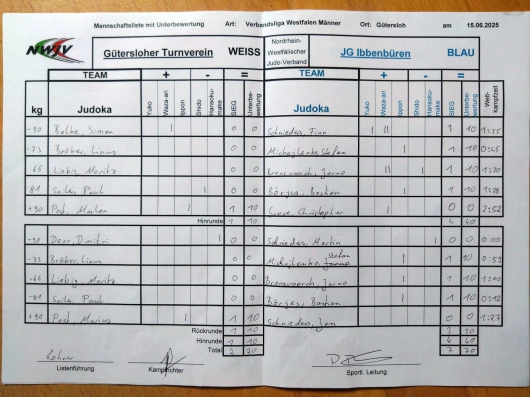 Mannschaftsliste mit Unterbewertung Art: Verbandsliga Westfalen Männer Ort: Gütersloh am 15.06.2025
NWJV Gütersloher Turnverein WEISS Nordrhein-Westfälischer Judo-Verband JG Ibbenbüren BLAU
TEAM + - = TEAM + - =
kg Judoka Yuko Waza-ari Ippon Shido Hansoku-make SIEG Unterbe-wertung Judoka Yuko Waza-ari Ippon Shido Hansoku-make SIEG Unterbe-wertung Wett-kampfzeit
-90 Simon I 0 0 Schnieders, Finn I II 1 10 1:35
-73 Bröker, Linus 0 0 Michajlenko, Stefan I 1 10 0:45
-66 Liebig, Moritz 0 0 Jarne II I 1 10 1:20
81 Seiler, Paul I 0 0 Börjes, Bastian I 1 10 1:28
+90 Post, I 1 10 Christopher 0 0 2:52
Hinrunde 1 10 4 40
-90 Deer, Dimitri I 0 0 Schnieders, Martin I 0 0 0:00
-73 Bröker, Linus 0 0 Michajlenko, Stefan I 1 10 0:53
-66 Liebig, Moritz 0 0 Jarne I 1 10 1:00
-81 Seiler, Paul 0 0 Börjes, Bastian I 1 10 0:12
+90 Post, Marius I 1 10 Schnieders, Jan 0 0 1:27
Rückrunde 1 10 3 30
Hinrunde 1 10 4 40
Total 2 20 7 70
Listenführung Kampfrichter Sportl. Leitung